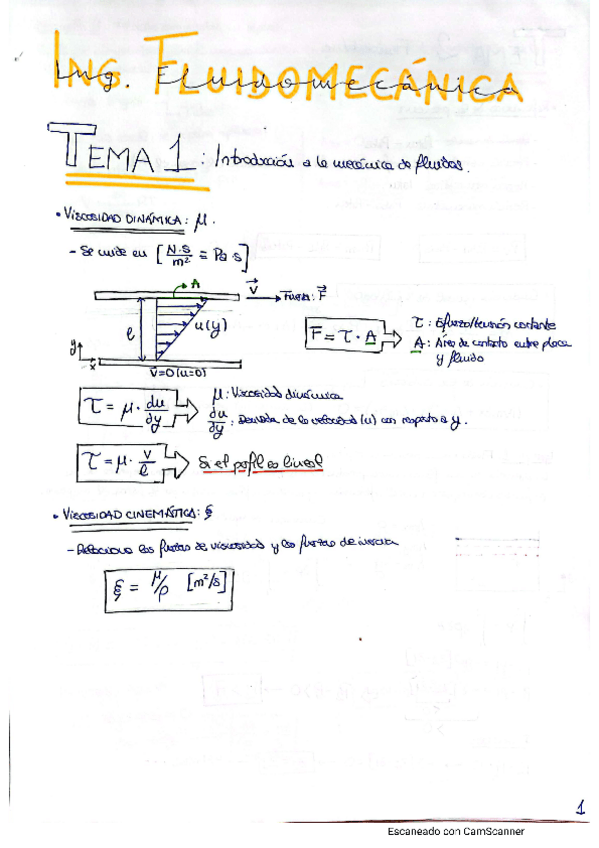 ING. FLUIDOMECÁNICA
Ing. Fluidomecánica
TEMA 1: Introducción a la mecánica de fluidos.
• VISCOSIDAD DINÁMICA: μ.
- Se mide en [N·s/m² = Pa·s]
A
V⃗
Fuerza: F⃗
l
u(y)
y
x
V=0 (u=0)
F = τ · A
τ: Esfuerzo/tensión cortante
A: Área de contacto entre placa
y fluido
τ = μ · du/dy
μ: Viscosidad dinámica
du/dy: Derivada de la velocidad (u) con respecto a y.
τ = μ · v/l
Si el perfil es lineal
• VISCOSIDAD CINEMÁTICA: ξ
- Relaciona las fuerzas de viscosidad y las fuerzas de inercia
ξ = μ/ρ [m²/s]
1
Escaneado con CamScanner